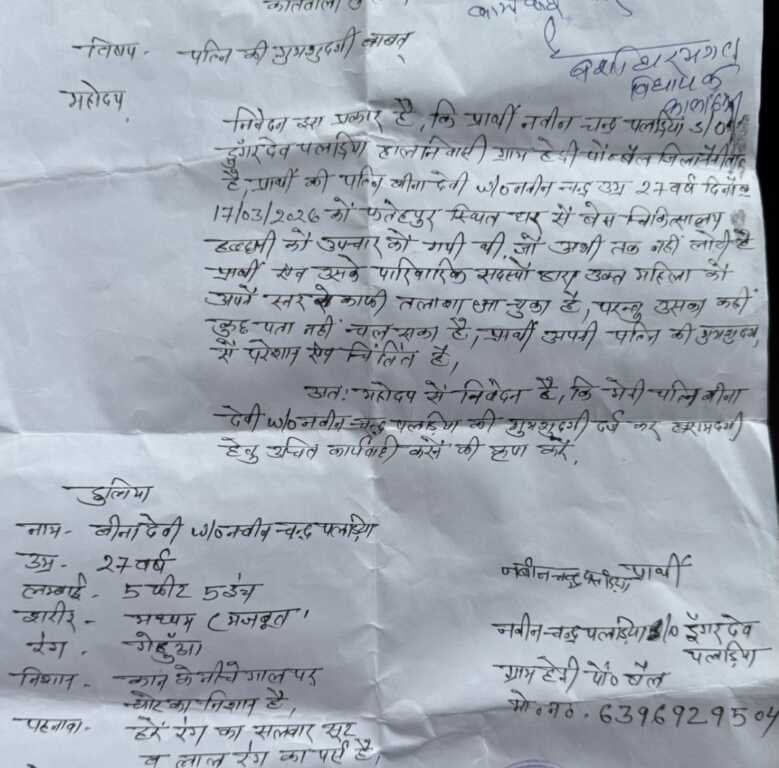 कोतवाली
विषय - पत्नि की गुमशुदगी बाबत्
महोदय,
निवेदन इस प्रकार है, कि प्रार्थी नवीन चन्द्र पलड़िया S/O
डुँगर देव पलड़िया हाल निवासी ग्राम हैरी पो० बैल जिला नैनीताल
है, प्रार्थी की पत्नि बीना देवी w/o नवीन चन्द्र उम्र 27 वर्ष दिनाँक
17/03/2026 को फतेहपुर स्थित घर से बेस चिकित्सालय
हल्द्वानी को उपचार को गयी थी, जो अभी तक नहीं लौटी है
प्रार्थी एंव उसके पारिवारिक सदस्यों द्वारा उक्त महिला को
अपने स्तर से काफी तलाशा जा चुका है, परन्तु उसका कहीं
कुछ पता नहीं चल सका है, प्रार्थी अपनी पत्नि की गुमशुदगी
से परेशान एंव चिंतित है,
अतः महोदय से निवेदन है, कि मेरी पत्नि बीना
देवी w/o नवीन चन्द्र पलड़िया की गुमशुदगी दर्ज कर बरामदगी
हेतु उचित कार्यवाही करने की कृपा करें,
हुलिया
नाम - बीना देवी w/o नवीन चन्द्र पलड़िया
उम्र - 27 वर्ष
लम्बाई - 5 फीट 5 इंच
शरीर - मध्यम (मजबूत)
रंग - गेहुँआ
निशान - कान के नीचे गाल पर
चोट का निशान है,
पहनावा - हरे रंग का सलवार सूट
व लाल रंग का पर्स है,
प्रार्थी
नवीन चन्द्र पलड़िया
नवीन चन्द्र पलड़िया S/o डुँगर देव
पलड़िया
ग्राम हैरी पो० बैल
मो० न० - 6396929504